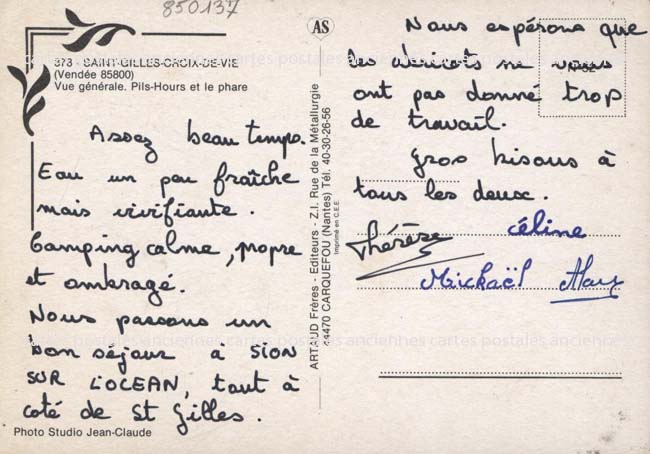 850137
373 - SAINT-GILLES-CROIX-DE-VIE
(Vendée 85800)
Vue générale. Pils-Hours et le phare
Assez beau temps.
Eau un peu fraîche
mais vivifiante.
Camping calme, propre
et ombragé.
Nous passons un
bon séjour à SION
SUR L'OCEAN, tout à
coté de St Gilles.
Photo Studio Jean-Claude
AS
ARTAUD Frères - Editeurs - Z.I. Rue de la Métallurgie
44470 CARQUEFOU (Nantes) Tél. 40-30-26-56
Imprimé en C.E.E.
Nous espérons que
les abricots ne vous
N° 82
ont pas donné trop
de travail.
Gros bisous à
tous les deux.
Thérèse
Céline
Mickaël
cartes postales anciennes cartes postales anciennes